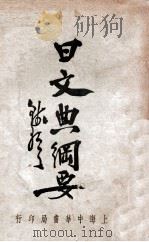 日文典綱要
行印局書華中海上